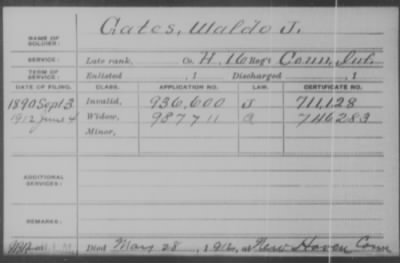 NAME OF SOLDIER: Gates, Waldo J.
SERVICE: Late rank, Co. H, 16 Reg't Conn. Inf.
TERM OF SERVICE: Enlisted , 1 Discharged , 1
DATE OF FILING. CLASS. APPLICATION NO. LAW. CERTIFICATE NO.
1890 Sept 3 Invalid, 936,600 J 711,128
1912 June 4 Widow, 987711 a 746283
Minor,
ADDITIONAL SERVICES:
REMARKS:
Died May 28, 1912, at New Haven Conn